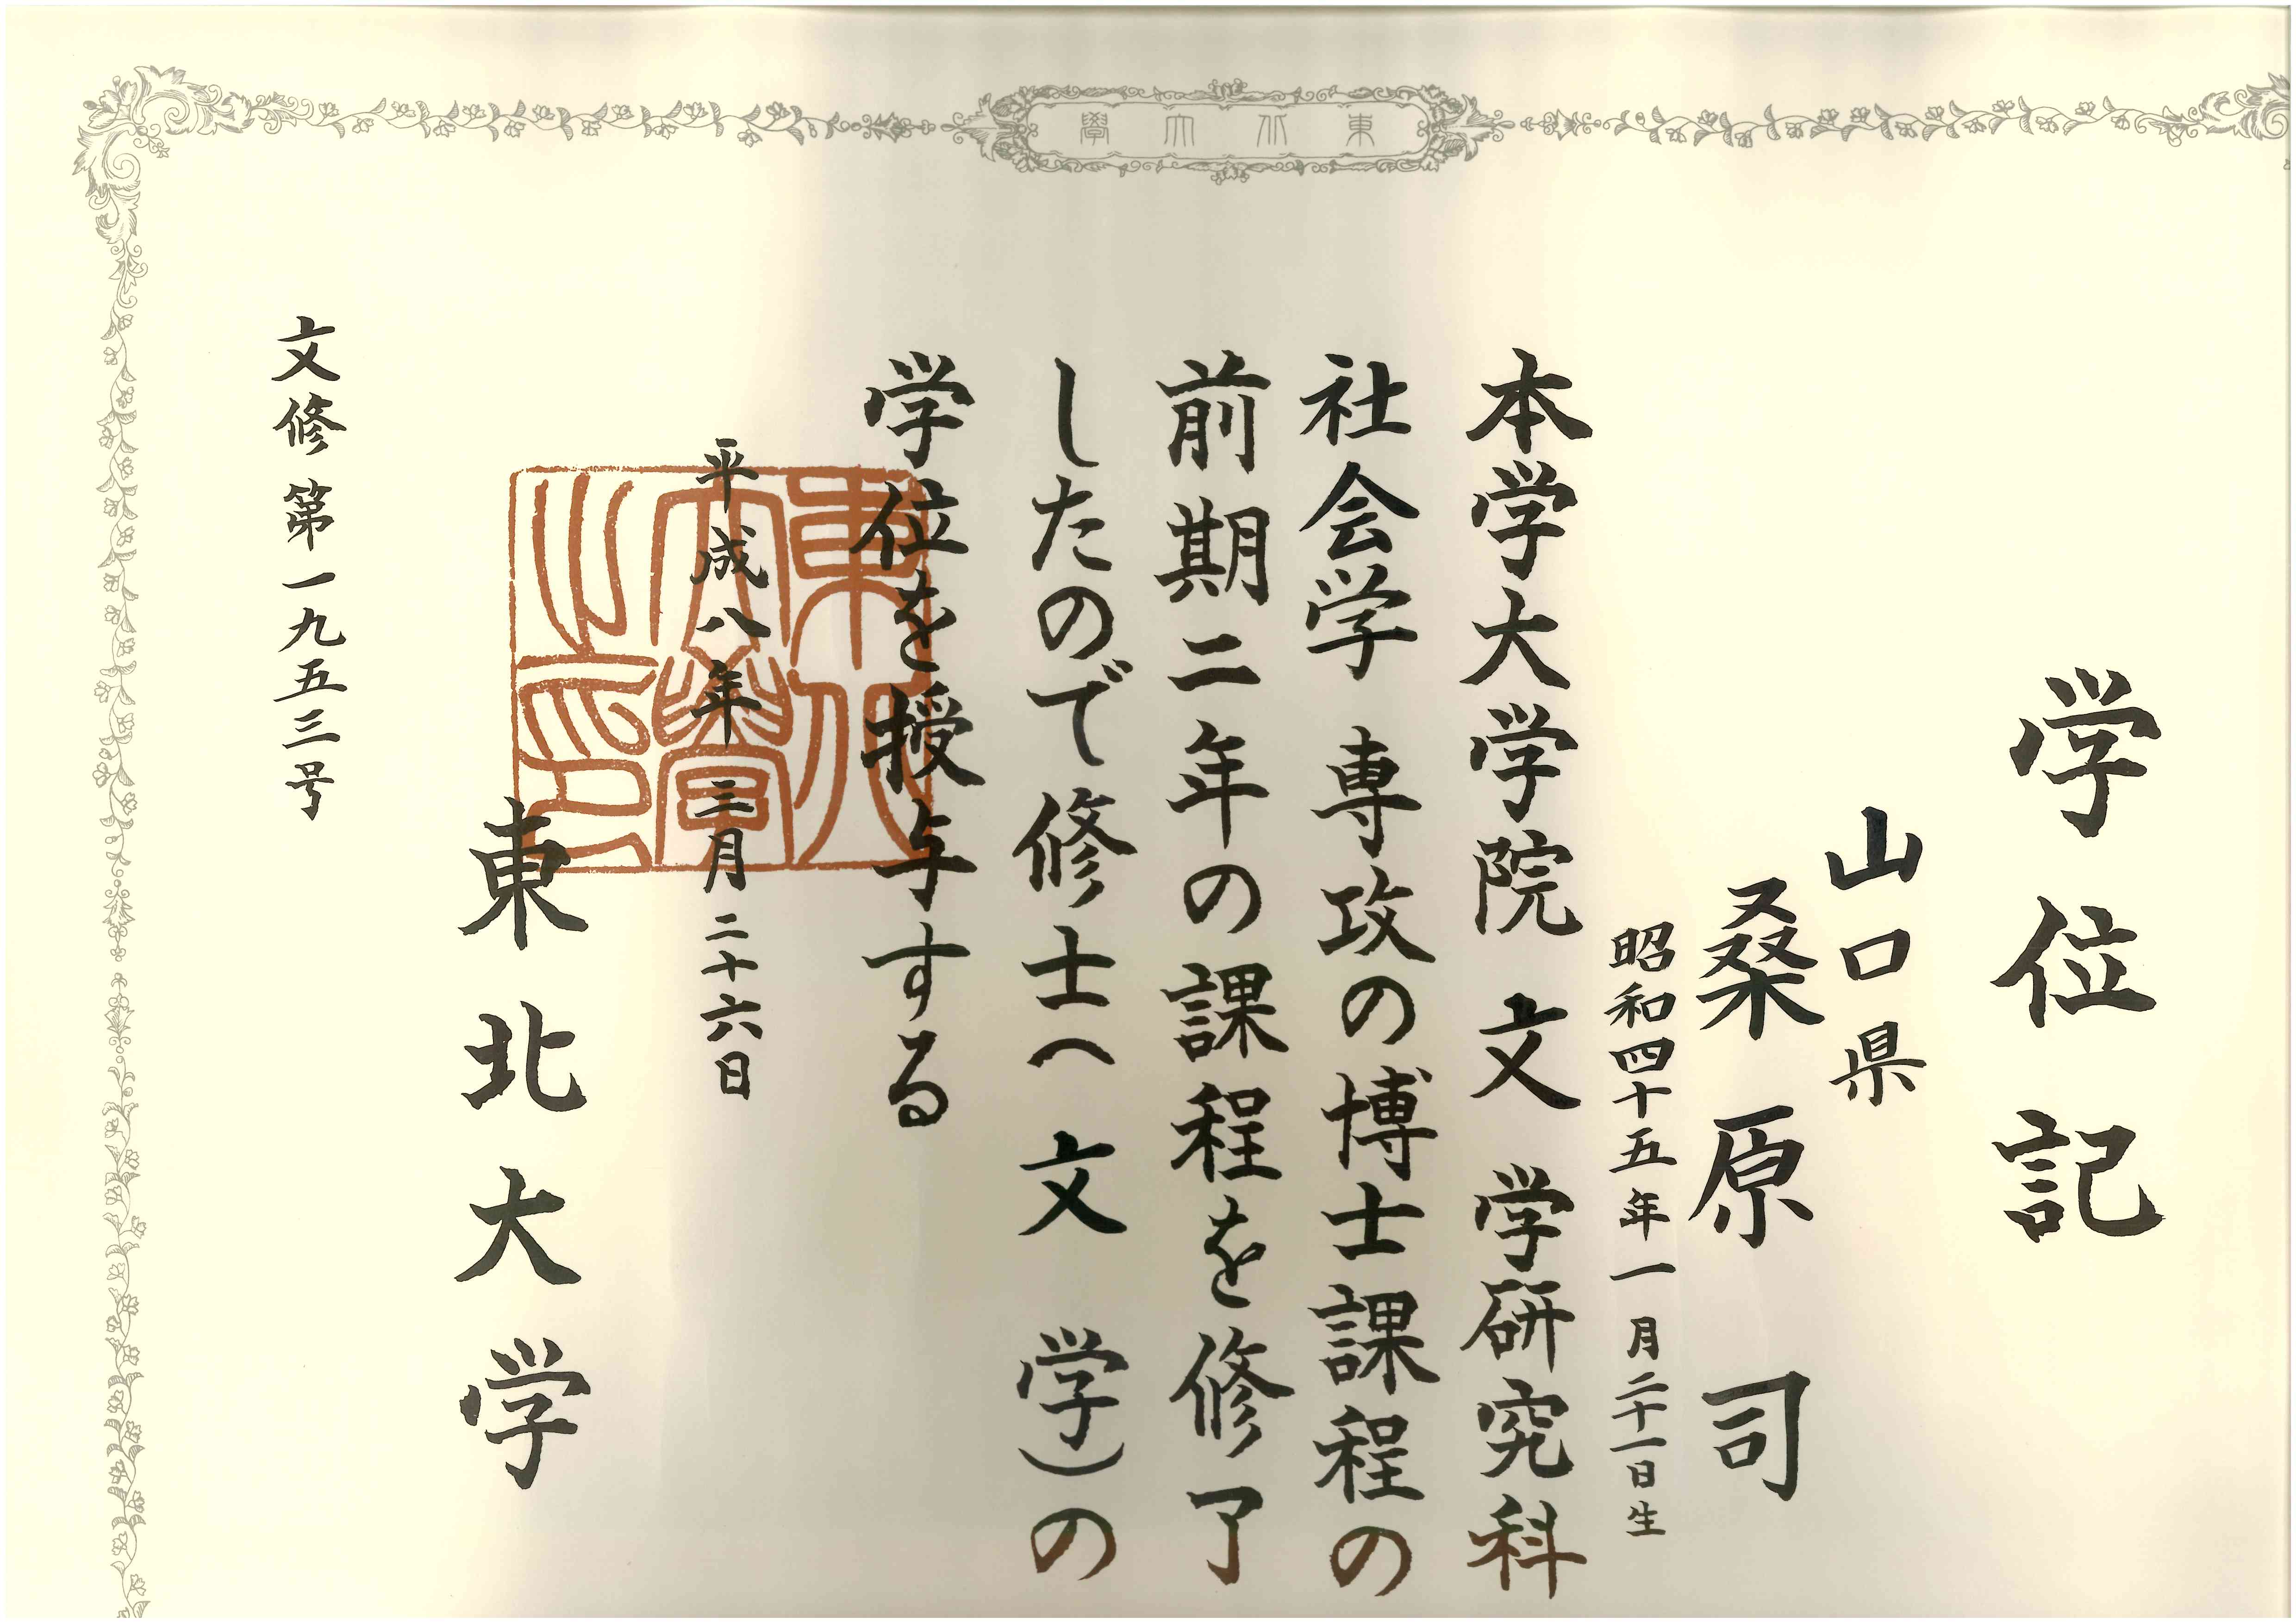 東北大學
学位記
山口県
桑原司
昭和四十五年一月二十一日生
本学大学院文学研究科
社会学専攻の博士課程の
前期二年の課程を修了
したので修士(文学)の
学位を授与する
平成八年三月二十六日
東北大学
文修第一九五三号
東北大學之印